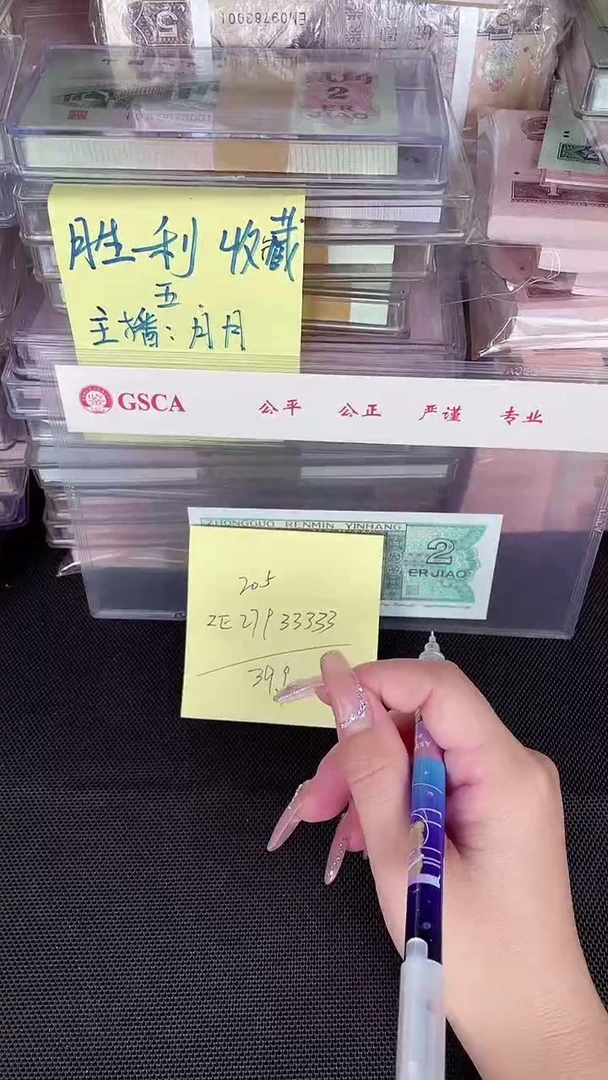 EM09783001
5
2
ER
JIAO
胜利 收藏
五
主播：月月
GSCA 公平 公正 严谨 专业
ZHONGGUO RENMIN YINHANG
2
ER JIAO
205
ZE27933333
39.9